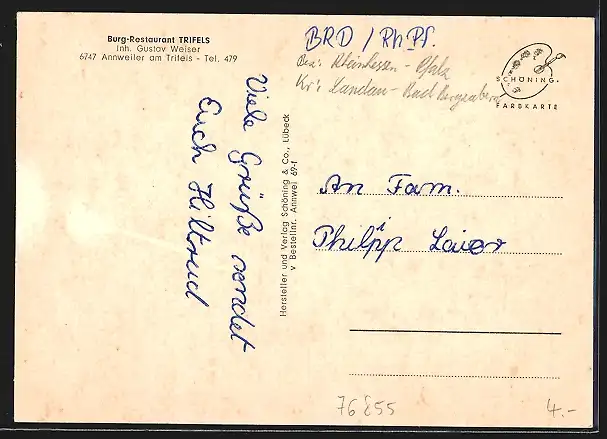 Burg-Restaurant TRIFELS
Inh. Gustav Weiser
6747 Annweiler am Trifels - Tel. 479
Viele Grüße sendet
Euch Hiltrud
Hersteller und Verlag Schöning & Co., Lübeck
v Bestellnr. Annwei 69-1
BRD / Rh.Pf.
Bez: Rheinhessen - Pfalz
Kr: Landau - Bad Bergzabern
SCHÖNING
FARBKARTE
An Fam.
Philipp Laier
76855
4.-